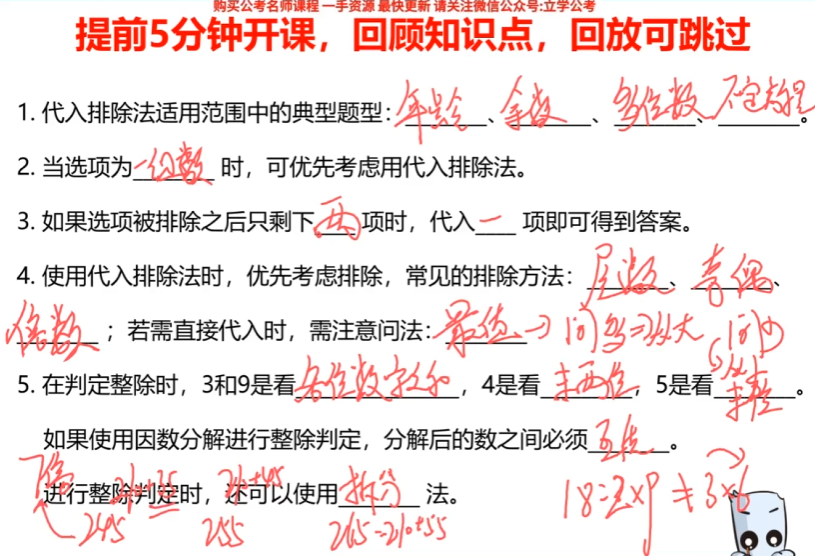 购买公考名师课程 一手资源 最快更新 请关注微信公众号:立学公考
提前5分钟开课，回顾知识点，回放可跳过
1. 代入排除法适用范围中的典型题型：年龄、余数、多位数、不定方程。
2. 当选项为一组数时，可优先考虑用代入排除法。
3. 如果选项被排除之后只剩下两项时，代入一项即可得到答案。
4. 使用代入排除法时，优先考虑排除，常见的排除方法：尾数、奇偶、
倍数；若需直接代入时，需注意问法：最值→问多⇒从大 问少
从小
5. 在判定整除时，3和9是看各位数字之和，4是看末两位，5是看末位。
如果使用因数分解进行整除判定，分解后的数之间必须互质。
进行整除判定时，还可以使用拆分法。
7倍 210+35 210+45 18=2×9≠3×6
245 255 265=210+55